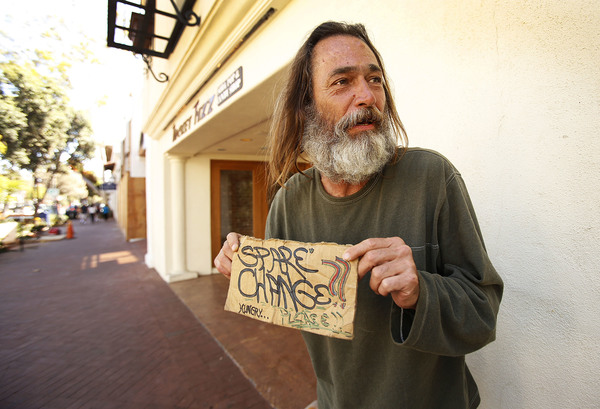 SPARE
CHANGE
HUNGRY...
PLEASE!!